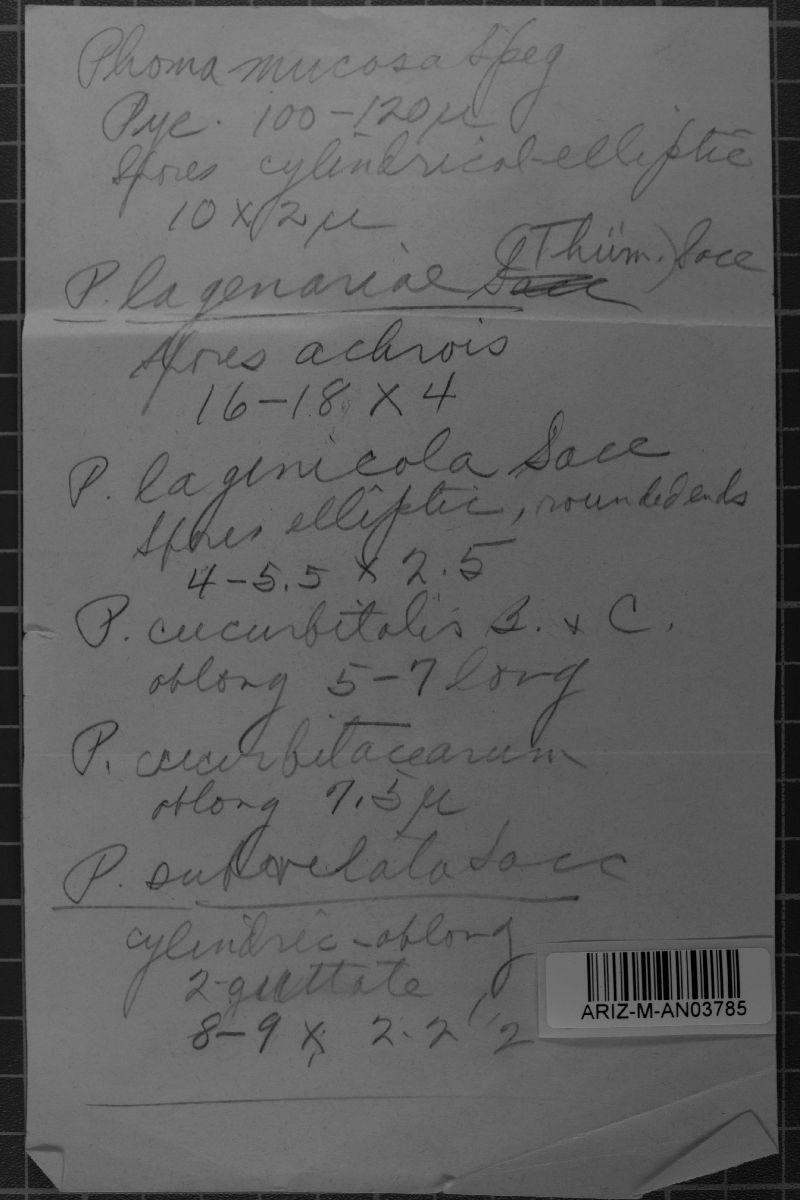 Phoma mucosa Speg
Pyc. 100-120µ
Spores cylindrical-elliptic
10 x 2 µ
P. lagenariae Sacc (Thüm.) Sacc
Spores achrois
16-18 X 4
P. lagenicola Sacc
Spores elliptic, rounded ends
4-5.5 x 2.5
P. cucurbitalis B. & C.
oblong 5-7 long
P. cucurbitacearum
oblong 7.5 µ
P. subvelata Sacc
cylindric-oblong
2-guttate
8-9 x 2-2 1/2
ARIZ-M-AN03785